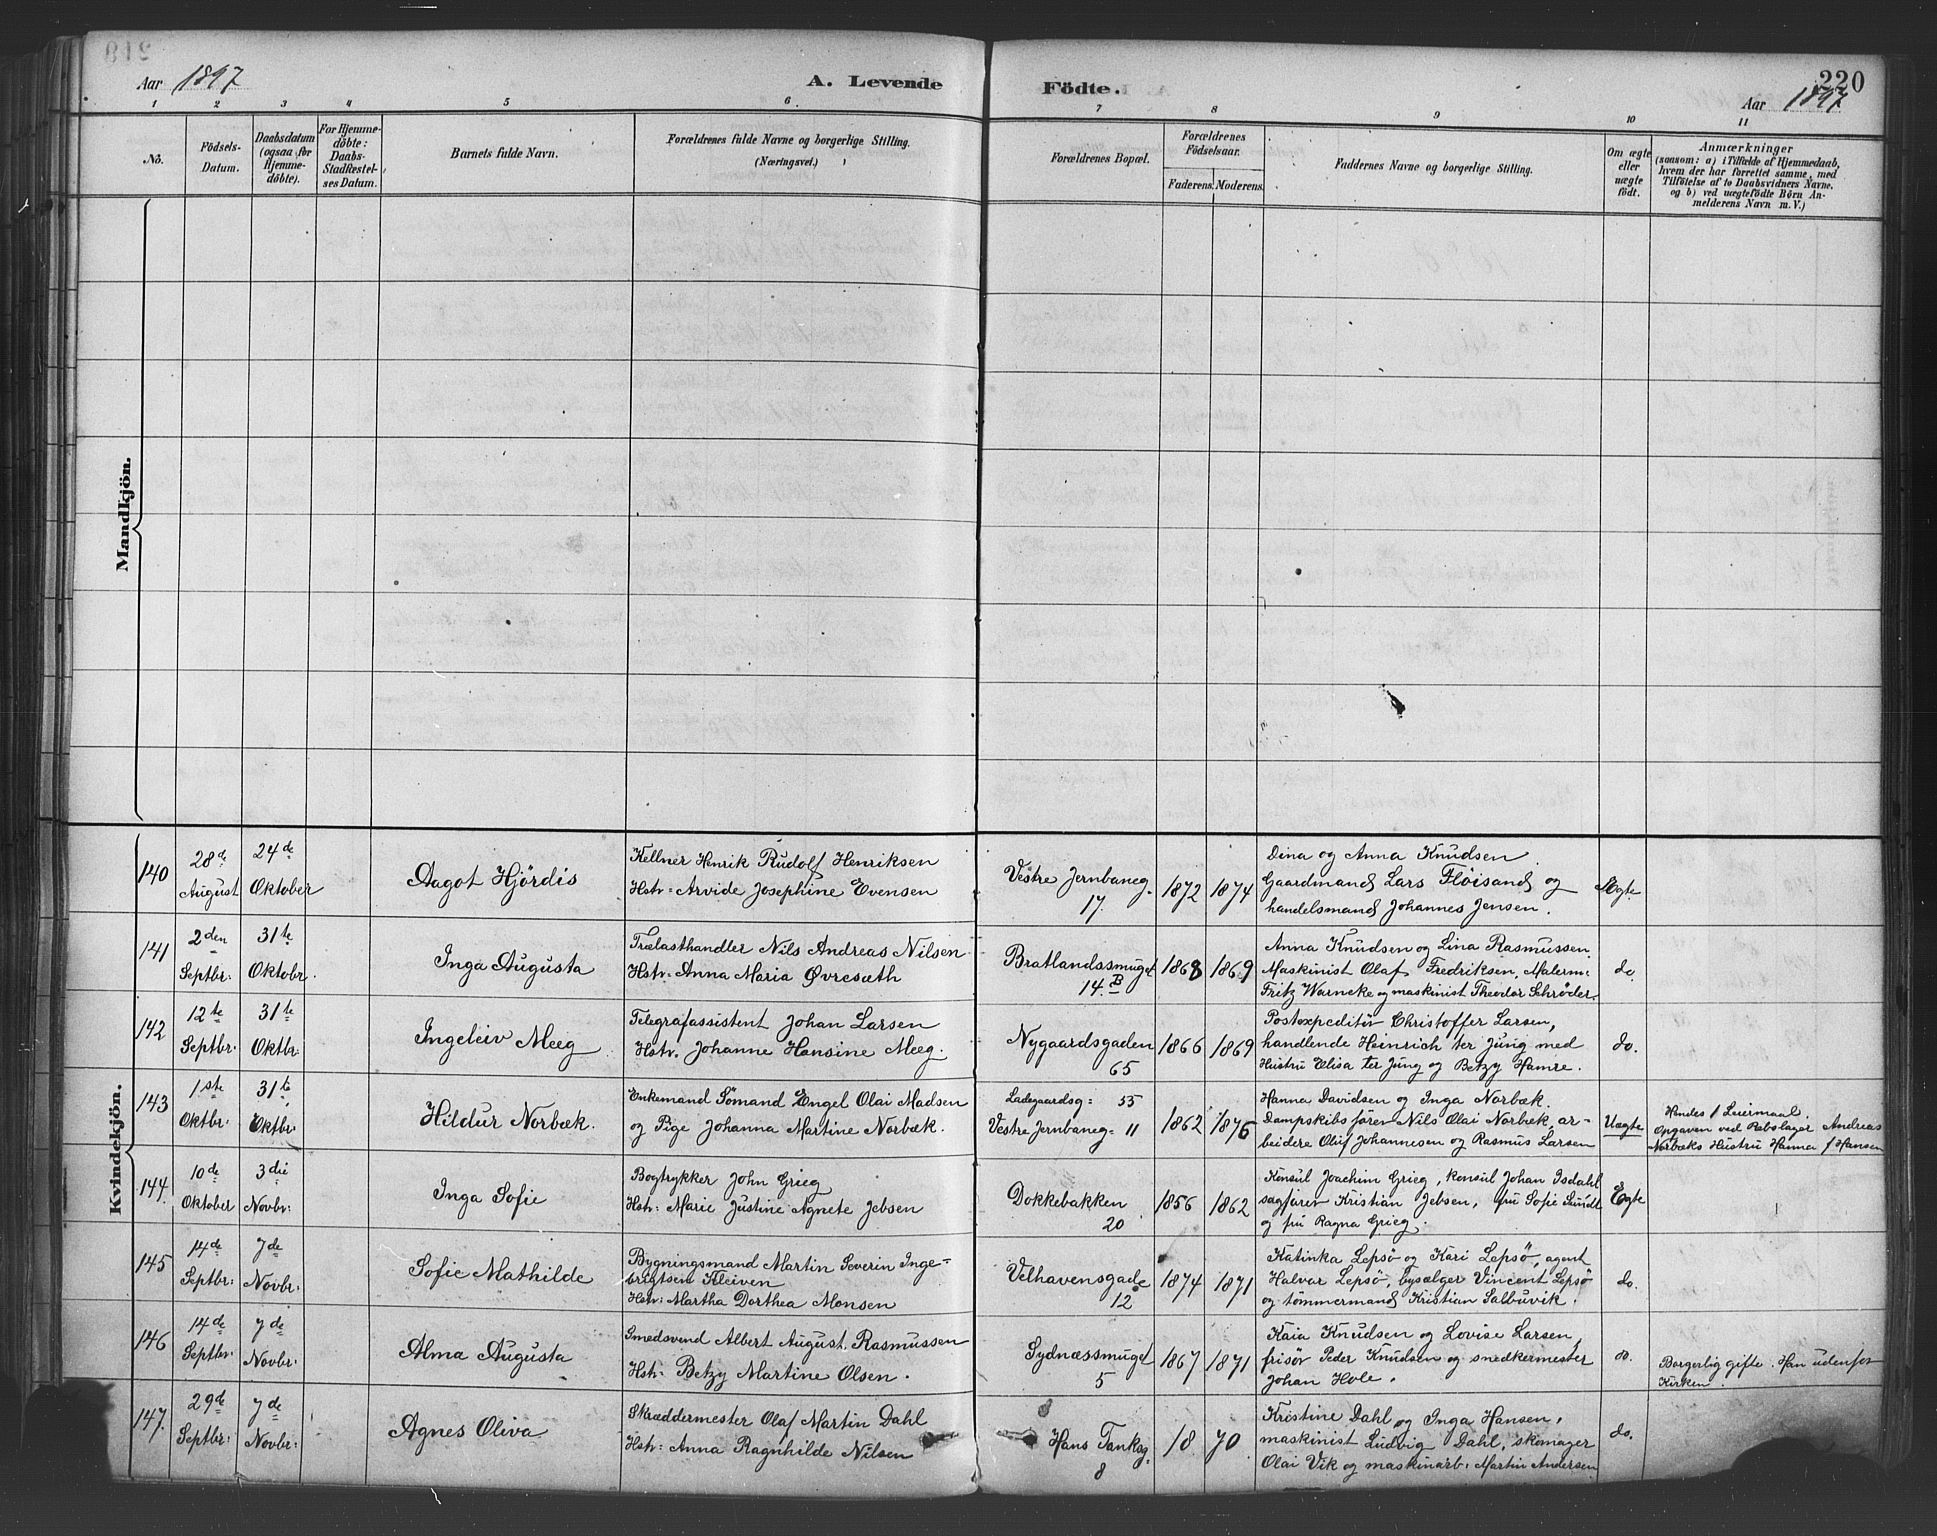 Aar 1897
A. Levende Födte.
220
Aar 1897
1 2 3 4 5 6. 7 8 9 10 11
No.
Födsels-
Datum.
Daabsdatum
(ogsaa for
Hjemme-
döbte).
For Hjemme-
döbte:
Daabs-
Stadfæstel-
ses Datum.
Barnets fulde Navn.
Forældrenes fulde Navne og borgerlige Stilling.
(Næringsvei.)
Forældrenes Bopæl.
Forældrenes
Födselsaar.
Faderens. Moderens.
Faddernes Navne og borgerlige Stilling.
Om ægte
eller
uægte
födt.
Anmærkninger
(saasom: a) i Tilfælde af Hjemmedaab,
hvem der har forrettet samme, med
Tilföielse af to Daabsvidners Navne.
og b) ved uægtefödte Börn An-
melderens Navn m. V.)
Mandkjön.
Kvindekjön.
140
28de
August
24de
Oktober
Aagot Hjördis
Kellner Henrik Rudolf Henriksen
Hstr: Arvide Josephine Evensen
Vestre Jernbaneg.
17.
1872 1874
Dina og Anna Knudsen
Gaardmand Lars Fløisand og
handelsmand Johannes Jensen.
Ægte
141
2den
Septbr:
31te
Oktobr.
Inga Augusta
Trælasthandler Nils Andreas Nilsen
Hstr: Anna Maria Øvresæth
Bratlandssmuget
14.B
1868 1869
Anna Knudsen og Lina Rasmussen.
Maskinist Olaf Fredriksen, Malerm:
Fritz Warneke og maskinist Theodor Schrøder.
do
142
12te
Septbr:
31te
Oktbr:
Ingeleiv Meeg
Telegrafassistent Johan Larsen
Hstr. Johanne Hansine Meeg.
Nygaardsgaden
65
1866 1869
Postexpeditör Christoffer Larsen,
handlende Heinrich ter Jung med
Hustru Elisa ter Jung og Betzy Hamre.
do.
143
1ste
Oktbr:
31te
Oktbr:
Hildur Norbæk.
Enkemand Sömand Engel Olai Madsen
og Pige Johanna Martine Norbæk.
Ladegaardsg: 55
Vestre Jernbaneg: 11
1862 1876
Hanna Davidsen og Inga Norbæk.
Dampskibsfören Nils Olai Norbæk, ar-
beidere Oluf Johannesen og Rasmus Larsen
Uægte
Hendes 1 Leiermaal.
Opgaven ved Rebslager Andreas
Norbæks Hustru Hanna f Hansen
144.
10de
Oktober
3die
Novbr:
Inga Sofie
Bogtrykker John Grieg
Hstr: Marie Justine Agnete Jebsen
Dokkebakken
20
1856 1862
Konsul Joachim Grieg, konsul Johan Isdahl
sagfører Kristian Jebsen, fru Sofie Sundt
og fru Ragna Grieg.
Egte
145
14de
Septbr:
7de
Novbr:
Sofie Mathilde
Bygningsmand Martin Severin Inge-
brigtsen Kleiven
Hstr: Martha Dorthea Monsen
Velhavensgade
12
1874 1871
Katinka Lepsö og Kari Lepsö, agent
Halvar Lepsö, bysælger Vincent Lepsö
og tömmermand Kristian Salbuvik.
do.
146
14de
Septbr:
7de
Novbr:
Alma Augusta
Smedsvend Albert August Rasmussen
Hstr: Betzy Martine Olsen.
Sydnæssmuget
5
1867 1871
Kaia Knudsen og Lovise Larsen,
frisör Peder Knudsen og snedkermester
Johan Hole.
do.
Borgerlig gifte. Han udenfor
Kirken.
147.
29de
Septbr:
7de
Novbr:
Agnes Oliva
Skræddermester Olaf Martin Dahl
Hstr: Anna Ragnhilde Nilsen
Hans Tanksg.
8
18 70
Kristine Dahl og Inga Hansen,
maskinist Ludvig Dahl, skomager
Olai Vik og maskinarb: Martin Andersen
do.